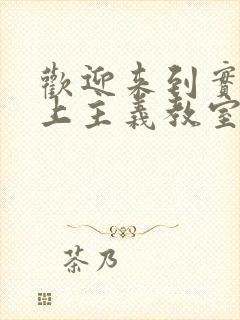 歡迎來到實
上主義教室
茶乃